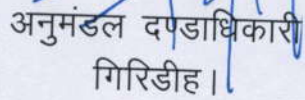 अनुमंडल दण्डाधिकारी
गिरिडीह।